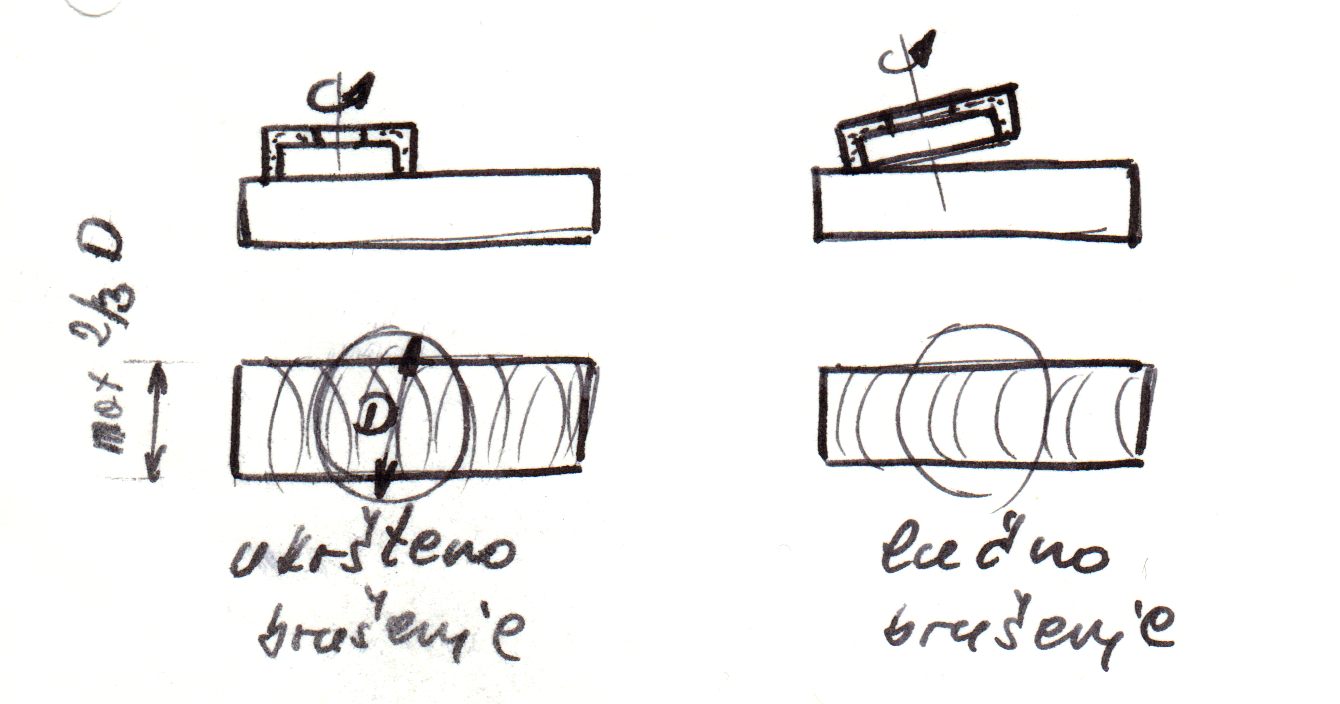 max 2/3 D
D
ukršteno
brušenje
lučno
brušenje